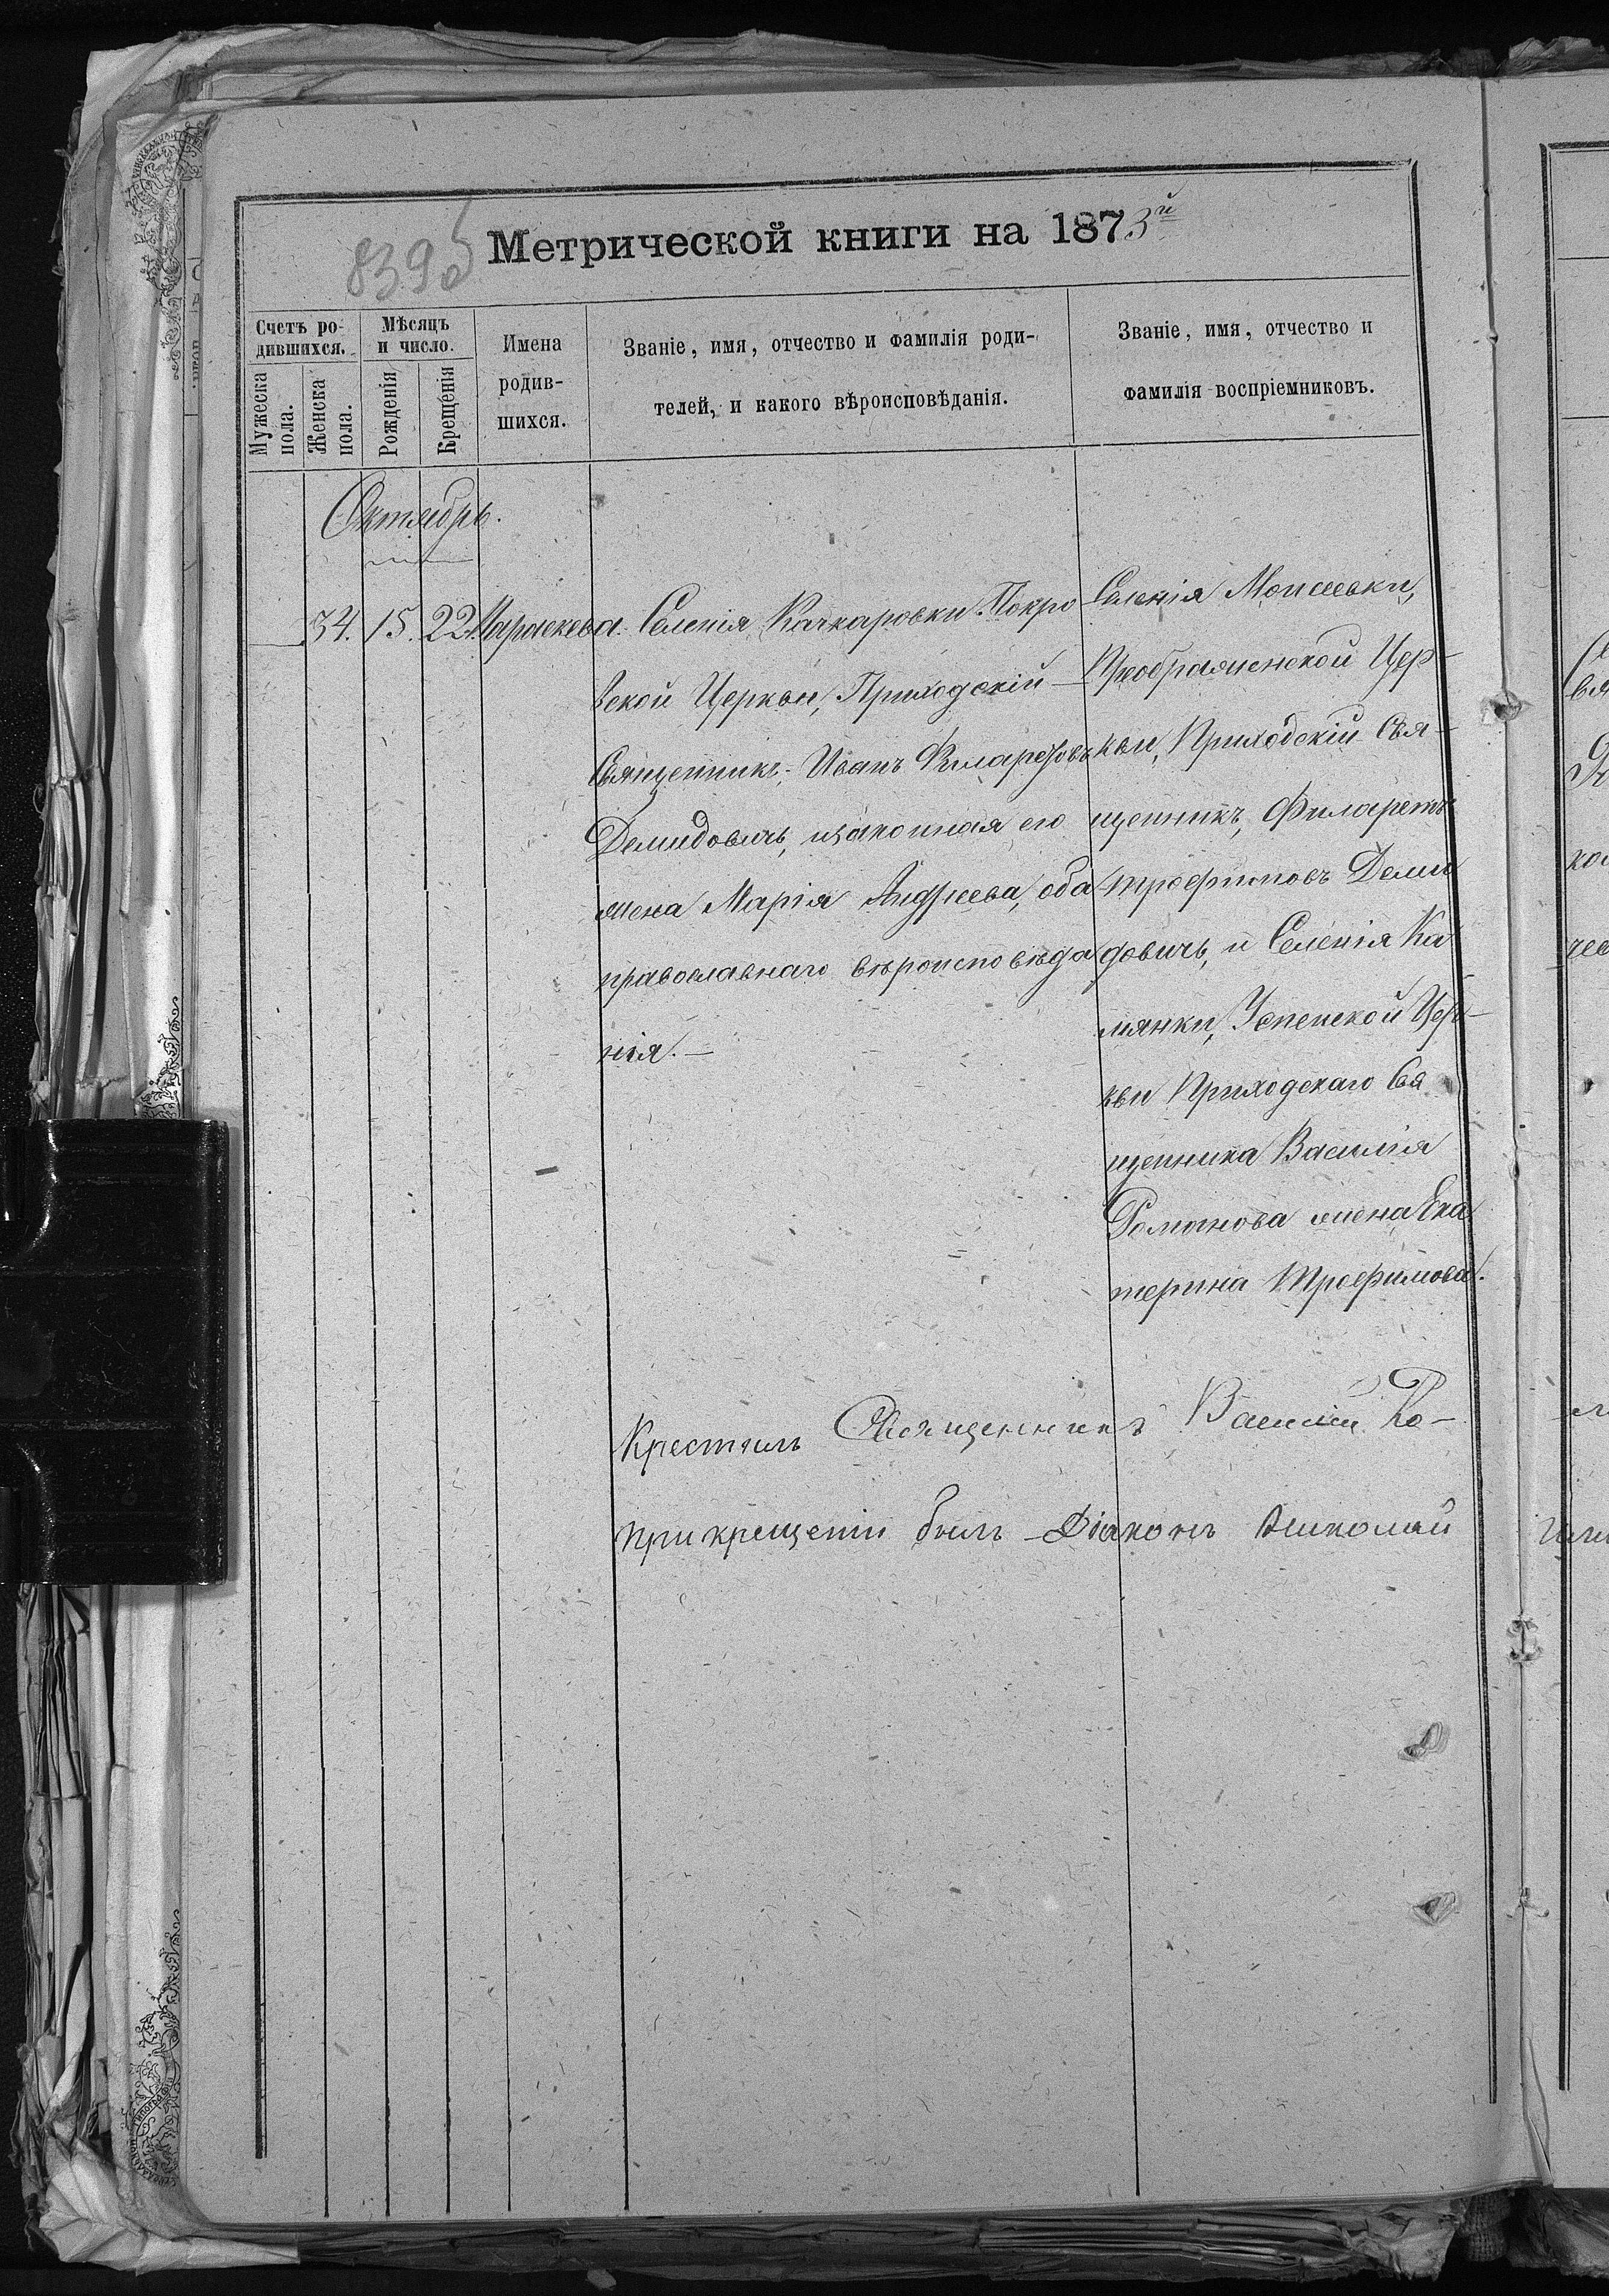 839об
Метрической книги на 1873й
Счетъ ро-
дившихся.
Мѣсяцъ
и число.
Мужеска
пола.
Женска
пола.
Рожденія
Крещенія
Имена
родив-
шихся.
Званіе, имя, отчество и фамилія роди-
телей, и какого вѣроисповѣданія.
Званіе, имя, отчество и
фамилія воспріемниковъ.
Октябрь.
34. 15. 22. Параскева.
Селенія Качкаровки Покро
вской Церкви, Приходскій
Священникъ Иванъ Филаретовъ
Демидовичъ, и законная его
жена Марія Андреева, оба
православнаго вѣроисповѣда
нія.—
Селенія Моисеевки,
Преображенской Цер-
кви, Приходскій Свя-
щенникъ, Филаретъ
Трофимовъ Деми
довичъ, и Селенія Ка
мянки, Успенской Цер-
кви Приходскаго Свя
щенника Василія
Романова жена Ека
терина Трофимова.
Крестилъ Священникъ Василій Ро-
При крещеніи былъ Діаконъ Николай